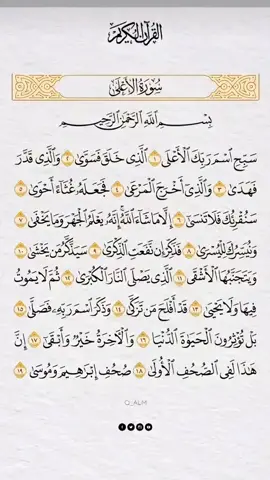 القرآن الكريم
سُورَةُ الأَعْلَى
بِسْمِ اللَّهِ الرَّحْمَٰنِ الرَّحِيمِ
سَبِّحِ اسْمَ رَبِّكَ الْأَعْلَى ١ الَّذِي خَلَقَ فَسَوَّىٰ ٢ وَالَّذِي قَدَّرَ
فَهَدَىٰ ٣ وَالَّذِي أَخْرَجَ الْمَرْعَىٰ ٤ فَجَعَلَهُ غُثَاءً أَحْوَىٰ ٥
سَنُقْرِئُكَ فَلَا تَنسَىٰ ٦ إِلَّا مَا شَاءَ اللَّهُ إِنَّهُ يَعْلَمُ الْجَهْرَ وَمَا يَخْفَىٰ ٧
وَنُيَسِّرُكَ لِلْيُسْرَىٰ ٨ فَذَكِّرْ إِن نَّفَعَتِ الذِّكْرَىٰ ٩ سَيَذَّكَّرُ مَن يَخْشَىٰ ١٠
وَيَتَجَنَّبُهَا الْأَشْقَى ١١ الَّذِي يَصْلَى النَّارَ الْكُبْرَىٰ ١٢ ثُمَّ لَا يَمُوتُ
فِيهَا وَلَا يَحْيَىٰ ١٣ قَدْ أَفْلَحَ مَن تَزَكَّىٰ ١٤ وَذَكَرَ اسْمَ رَبِّهِ فَصَلَّىٰ ١٥
بَلْ تُؤْثِرُونَ الْحَيَوٰةَ الدُّنْيَا ١٦ وَالْآخِرَةُ خَيْرٌ وَأَبْقَىٰ ١٧ إِنَّ
هَٰذَا لَفِي الصُّحُفِ الْأُولَىٰ ١٨ صُحُفِ إِبْرَاهِيمَ وَمُوسَىٰ ١٩
Q_ALM